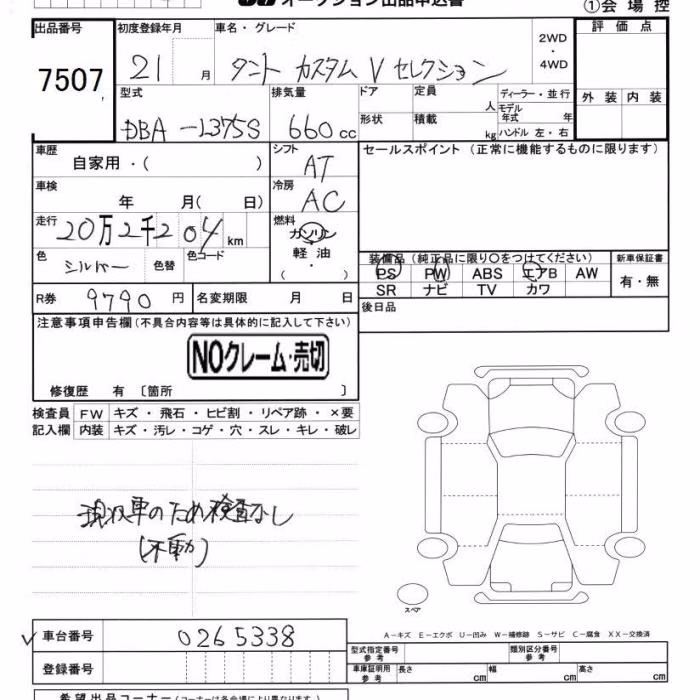 オークション出品申込書
①会場控
出品番号 初度登録年月 車名・グレード 評価点
7507
21 月 タント カスタム V セレクション
2WD
・
4WD
型式 排気量 ドア 定員 人 ディーラー・並行 外装 内装
モデル年式 年
DBA-L375S 660cc 形状 積載 kg ハンドル 左・右
車歴 シフト セールスポイント (正常に機能するものに限ります)
自家用・( ) AT
車検 冷房
年 月( 日) AC
走行 燃料
20万2千204km ガソリン
軽油
( ・ )
色 シルバー 色替 色コード
装備品 (純正品に限り〇をつけてください) 新車保証書
PS PW ABS エアB AW 有・無
SR ナビ TV カワ
R券 9790円 名変期限 月 日 後日品
注意事項申告欄(不具合内容等は具体的に記入して下さい)
NOクレーム・売切
修復歴 有 〔箇所 〕
検査員 FW キズ・飛石・ヒビ割・リペア跡・×要
記入欄 内装 キズ・汚レ・コゲ・穴・スレ・キレ・破レ
現状車のため検査なし
(不動)
スペア
A-キズ E-エクボ U-凹み W-補修跡 S-サビ C-腐食 XX-交換済
車台番号 0265338
型式指定番号 参考 類別区分番号 参考
登録番号 車庫証明用 参考 長さ cm 幅 cm 高さ cm
希望出品コーナー(コーナーは各会場により異なります。)